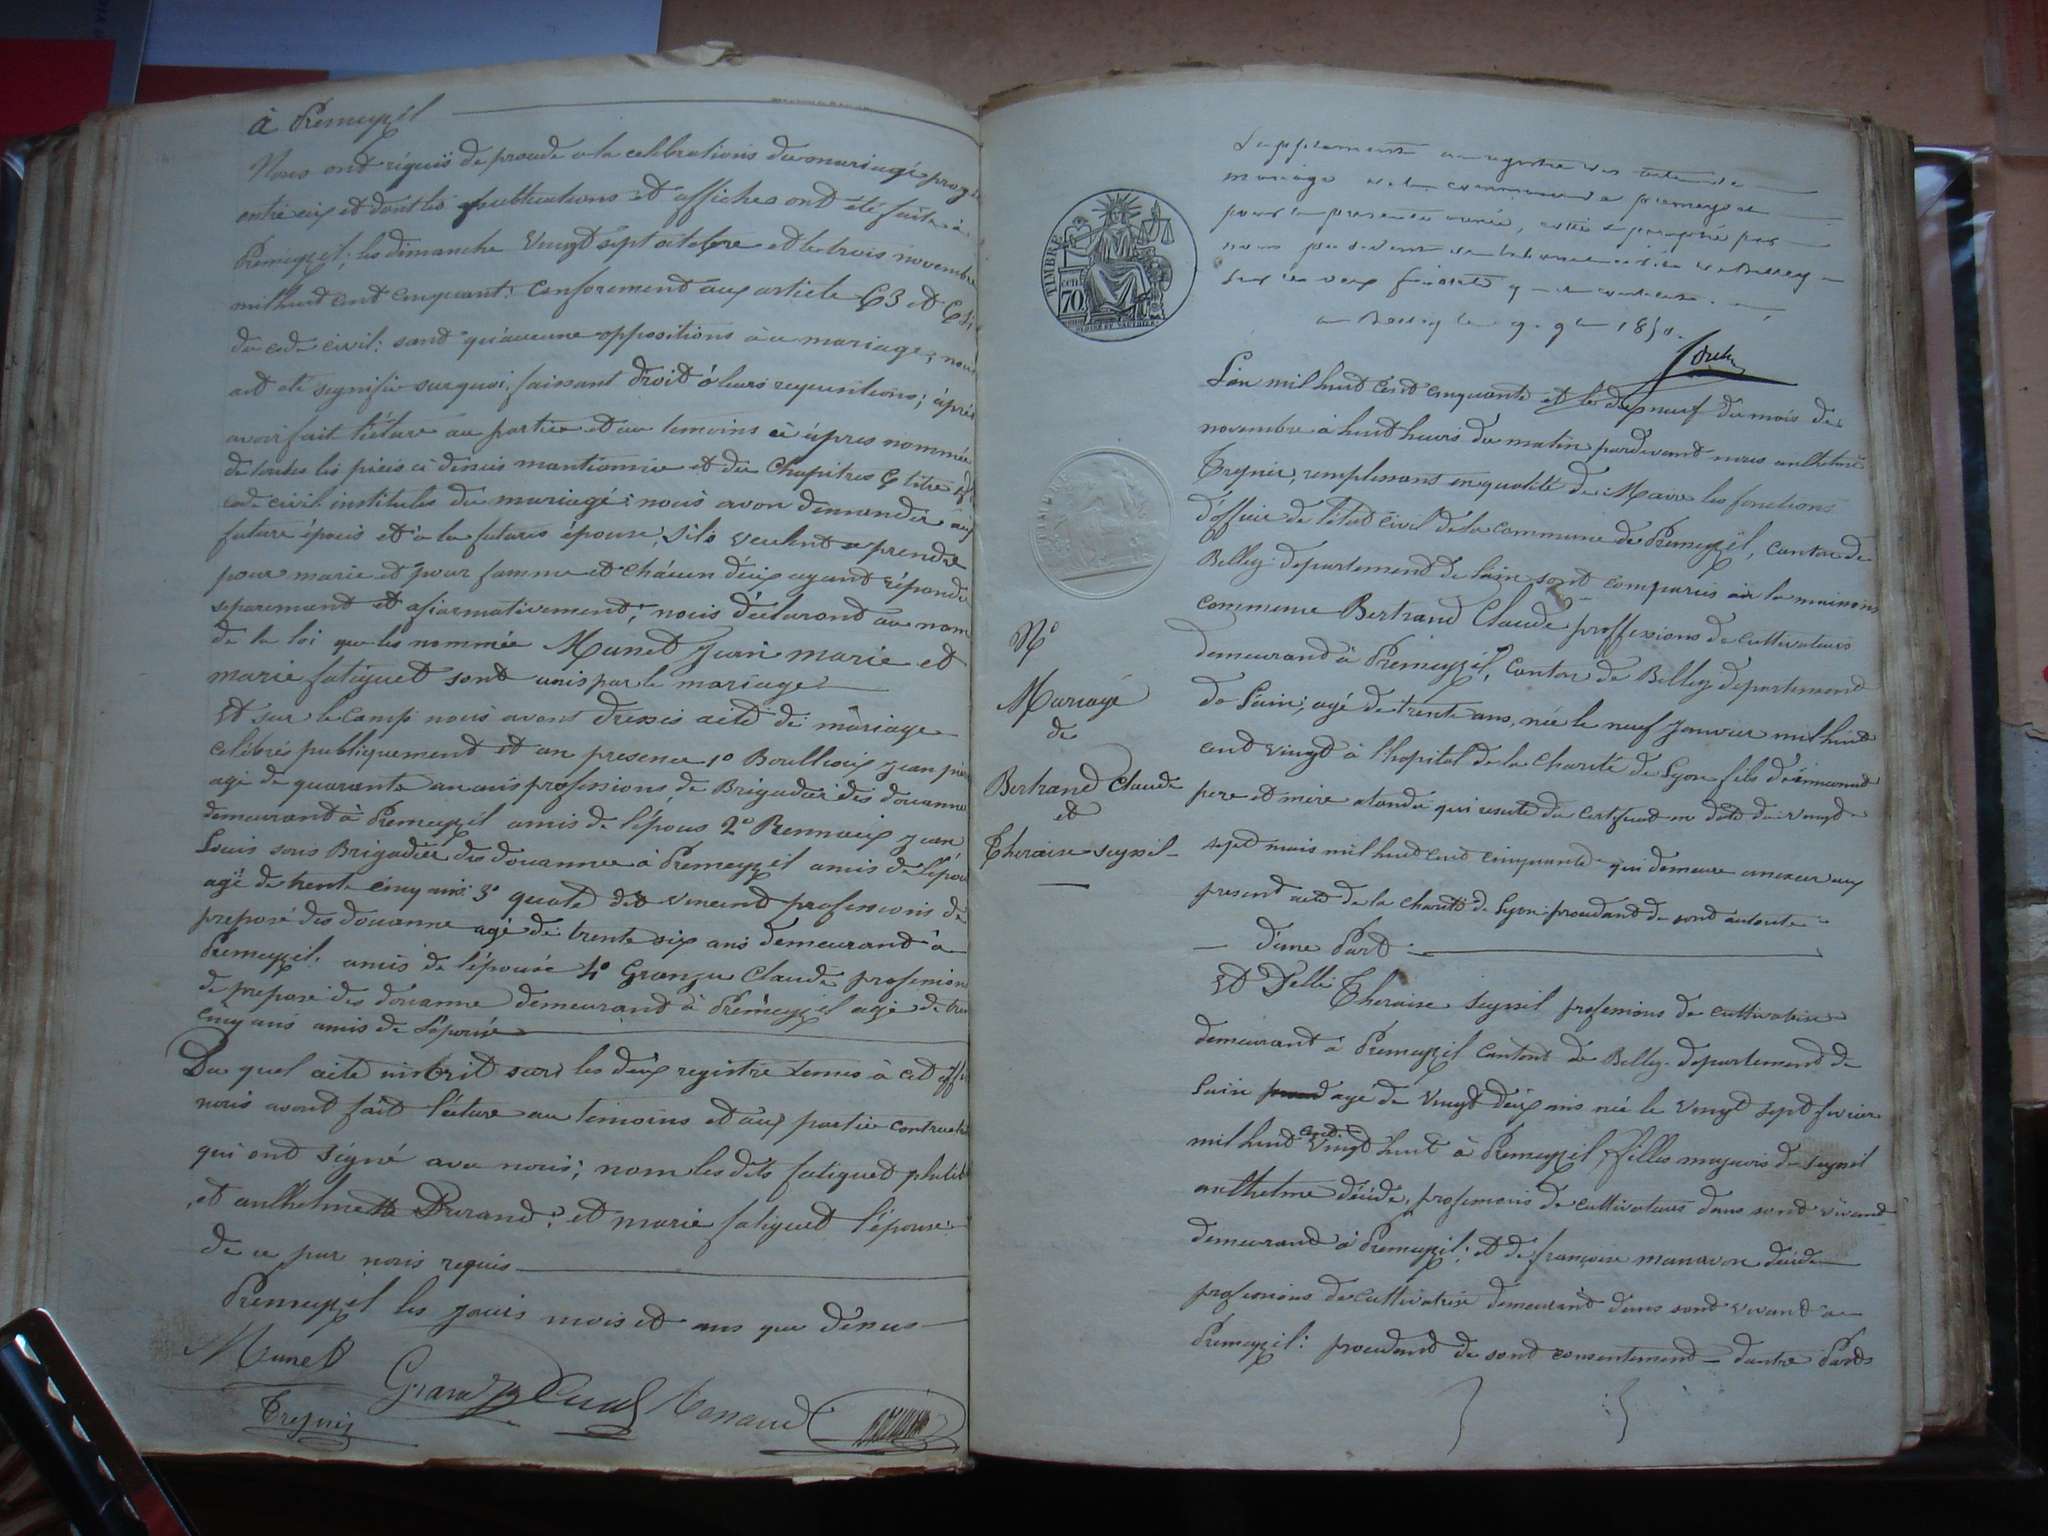 à Prémeyzel
Nous ont réquis de procede a la celebrations du mariagé
entre eux et dont les publications et affiches ont été faite à
Prémeyzel; les dimanche vingt sept octobre et le trois novembre
mil huit cent cinquant: conforement aux article 63 et
du code civil: sant qu'aucune oppositions à ce mariage, nous
ait eté signifie surquoi, faissant droit à leurs requisitions; àprés
avoir fait l'écture au partie et au temoins ci àpres nommée
de toutes les pieces ci dessus mantionnée et du Chapitres 6 titre
code civil institules du mariagé: nous avon demander aux
future épouis et à la futures épouse; s'ils veulent prendre
pour marie et pour famme et chácun d'éux ayant répondu
separemant et afiarmativement; nous déclarond au nom
de la loi que les nommée Munet Jean marie et
marie fatiguet sont unis par le mariage
Et sur le camp nous avons dressés acte de mâriage
celébré publiquement et an presence 1º Boullioux jean
agé de quarante an professions de Brigadier dés douanne
demeurant à Prémeyzel amis de l'épous 2º Rennaux jean
Louis sous Brigadier des douannes à Prémeyzel amis de l'épou
agé de trente cinq ans 3º vincent professions dé
preposé des douanne agé de trente six ans demeurant à
Prémeyzel. amis de l'épousé 4º Granju Claude profession
de preposé des douanne demeurand à Prémeyzel agé de
cinq ans amis de l'épousé
Du quel acte inscrit surs les deux registre tenus à cet effet
nous avont fait l'ecture au témoins et aux partie
qui ont signé avec nous; nom les dits fatiguet
et anthelme Durand; et marie fatiguet l'épouse
de ce par nous requis
Prémeyzel les jours mois et ans que déssus
Munet
Tregnier
Supplement au registre des actes de
mariage de la commune de premeyzel
pour la presente année, cotté et paraphé par
nous president du tribunal civil de Belley
1850.
TIMBRE
70
L'an mil huit cent cinquante et le dix neuf du mois de
novembre à huit heurs du matin pardevant nous anthelme
Tregnier, remplissant en qualité de Maire les fonctions
d'officie de l'état civil de la commune de Prémeyzel, canton de
Belley departement de l'ain sont comparus à la maisons
commune Bertrand Claude proffessions de cultivateurs
demeurand à Prémeyzel, canton de Belley departement
de l'ain; agé de trente ans, née le neuf janvier mil huit
cent vingt à l'hopital de la charité de Lyon fils de
pere et mere atandu qui resulte du certificat en date du vingt
sept mais mil huit cent cinquante qui demeure anexer aux
present acte de la charité de Lyon procedant de sont autorite
d'une Part
Nº
Mariagé
de
Bertrand Claude
et
Theraise seyssil
Et Delle Theraise seyssil professions de cultivatrise
demeurant à Prémeyzel cantont de Belley departement de
l'ain agé de vingt deux ans née le vingt sept fevrier
mil huit cent vingt huit à Prémeyzel, filles majeuis de seyssil
anthelme décédé, professions de cultivateurs dans sont vivant
demeurand à Prémeyzel; et de françoise manavon décidé
professions de cultivatrise demeurant dans sont vivant à
Prémeyzel: procedant de sont consentement d'autre Parts